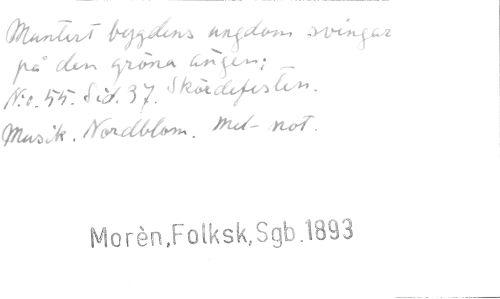 Muntert bygdens ungdom svingar
på den gröna ängen;
No. 55. Sid. 37. Skördefesten.
Musik. Nordblom. Mel- not.
Morèn,Folksk,Sgb.1893